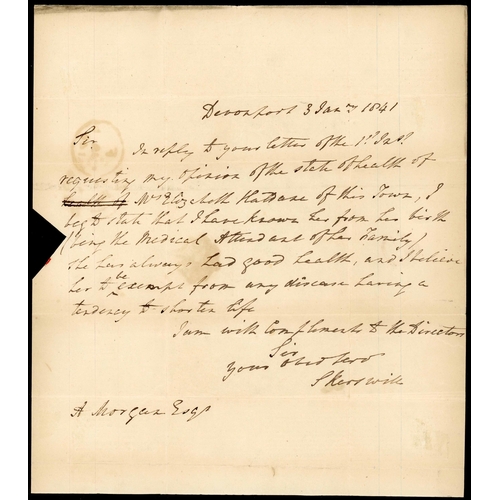 Devonport 3 Jany 1841
Sir,
In reply to your letter of the 1st Inst.
requesting my Opinion of the state of health of
health of Mrs Elizabeth of this Town, I
beg to state that I have known her from her birth
(being the Medical Attendant of her Family)
She has always had good health, and I believe
her to be exempt from any disease having a
tendency to shorten life
I am with Compliments to the Directors
Sir
your obed serv
S Kerswill
A Morgan Esqr